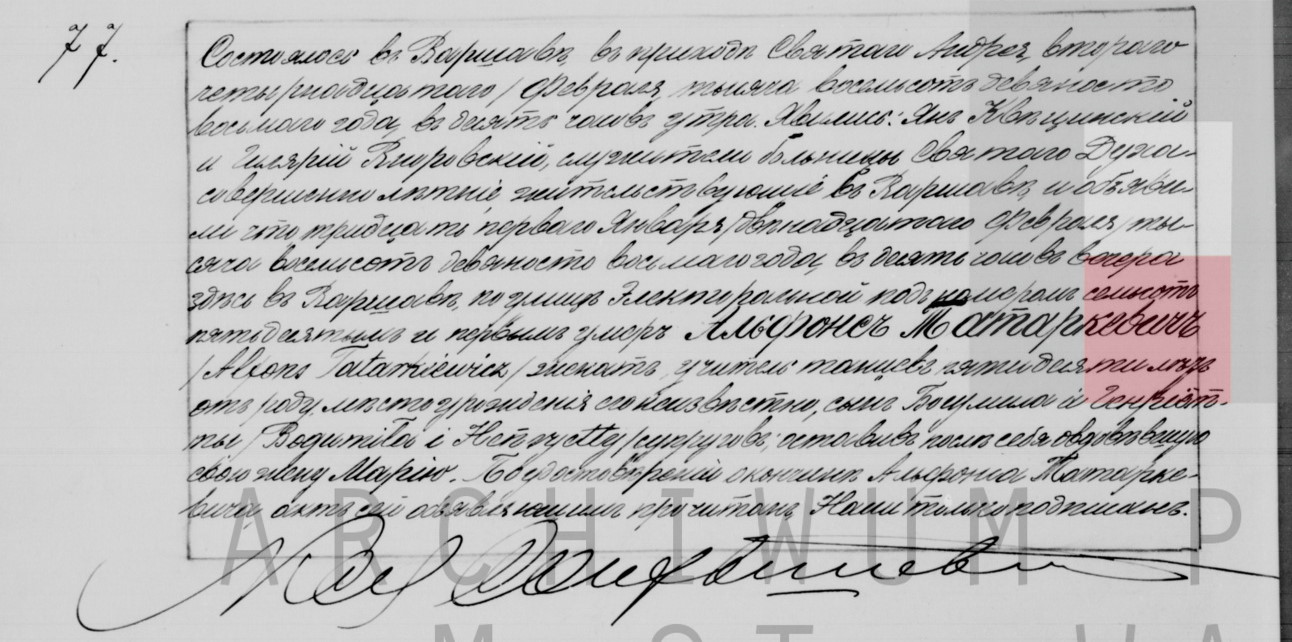 77.
Состоялось въ Варшавѣ, въ приходѣ Святаго Андрея, втораго
/четырнадцатаго/ Февраля, тысяча восемьсотъ девяносто
восьмаго года, въ десять часовъ утра. Явились: Янъ Квѣцинскій
и Гилярій Яворовскій, служители больницы Святаго Духа
совершеннолѣтніе жительствующіе въ Варшавѣ, и объяви-
ли что, тридцать перваго Января /двѣнадцатаго Февраля/ ты-
сяча восемьсотъ девяносто восьмаго года, въ десять часовъ вечера
здѣсь въ Варшавѣ, по улицѣ Электоральной подъ номеромъ семьсотъ
пятьдесятымъ и первымъ умеръ Альфонсъ Татаркевичъ
/Alfons Tatarkiewicz/ женатъ, учитель танцевъ, пятидесяти лѣтъ
отъ роду, мѣсто урожденія его неизвѣстно, сынъ Богумила и Генріэт-
ты /Bogumiła i Henryetty/ супруговъ; оставивъ послѣ себя овдовѣвшую
свою жену Марію. По удостовѣреніи о кончинѣ Альфонса Татарке-
вича, актъ сей объявляющимъ прочитанъ, Нами только подписанъ.
ARCHIWUM P
M ST WA